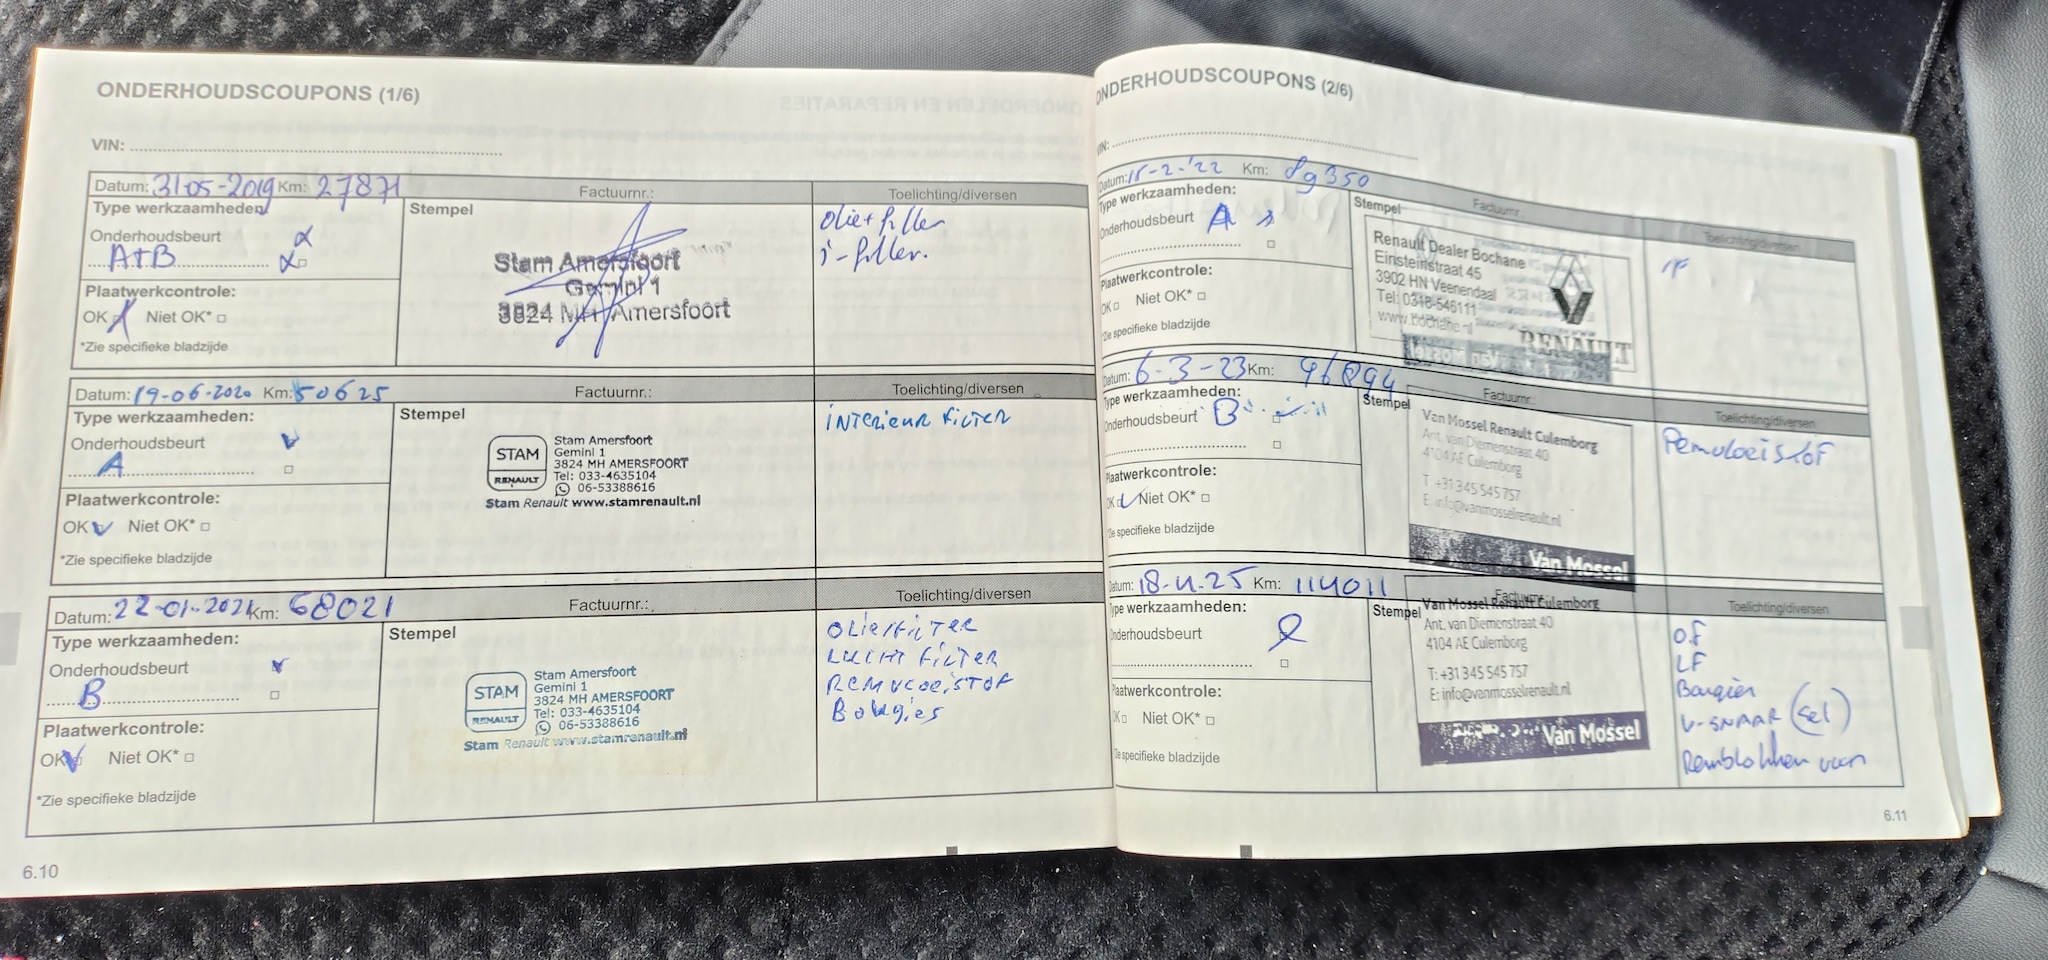 ONDERHOUDSCOUPONS (1/6)
VIN:
Datum: 31-05-2019 Km: 27871 Factuurnr.: Toelichting/diversen
Type werkzaamheden
Onderhoudsbeurt
A+B
Plaatwerkcontrole:
OK Niet OK*
*Zie specifieke bladzijde
Stempel
Stam Amersfoort
Gemini 1
3824 MH Amersfoort
olie+filter
i-filter.
Datum: 19-06-2020 Km: 50625 Factuurnr.: Toelichting/diversen
Type werkzaamheden:
Onderhoudsbeurt
A
Plaatwerkcontrole:
OK Niet OK*
*Zie specifieke bladzijde
Stempel
STAM
RENAULT
Stam Amersfoort
Gemini 1
3824 MH AMERSFOORT
Tel: 033-4635104
06-53388616
Stam Renault www.stamrenault.nl
INTERIEUR FILTER
Datum: 22-01-2021 Km: 68021 Factuurnr.: Toelichting/diversen
Type werkzaamheden:
Onderhoudsbeurt
B
Plaatwerkcontrole:
OK Niet OK*
*Zie specifieke bladzijde
Stempel
STAM
RENAULT
Stam Amersfoort
Gemini 1
3824 MH AMERSFOORT
Tel: 033-4635104
06-53388616
Stam Renault www.stamrenault.nl
OLIEFILTER
LUCHT FILTER
REMVLOEISTOF
Bougies
6.10
ONDERHOUDSCOUPONS (2/6)
VIN:
Datum: Km: 89350 Factuurnr. Toelichting/diversen
Type werkzaamheden:
Onderhoudsbeurt A
Plaatwerkcontrole:
OK Niet OK*
*Zie specifieke bladzijde
Stempel
Renault Dealer Bochane
Einsteinstraat 45
3902 HN Veenendaal
Tel: 0318-546111
www.bochane.nl
RENAULT
Van Mossel
Datum: 6-3-23 Km: 96894 Factuurnr.: Toelichting/diversen
Type werkzaamheden:
Onderhoudsbeurt B
Plaatwerkcontrole:
OK Niet OK*
*Zie specifieke bladzijde
Stempel
Van Mossel Renault Culemborg
Ant. van Diemenstraat 40
4104 AE Culemborg
T: +31 345 545 757
E: info@vanmosselrenault.nl
Van Mossel
Remvloeistof
Datum: Km: 114011 Factuurnr. Toelichting/diversen
Type werkzaamheden:
Onderhoudsbeurt
Plaatwerkcontrole:
OK Niet OK*
*Zie specifieke bladzijde
Stempel
Van Mossel Renault Culemborg
Ant. van Diemenstraat 40
4104 AE Culemborg
T: +31 345 545 757
E: info@vanmosselrenault.nl
Van Mossel
OF
LF
Bougies
V-SNAAR (set)
Remblokken voor
6.11